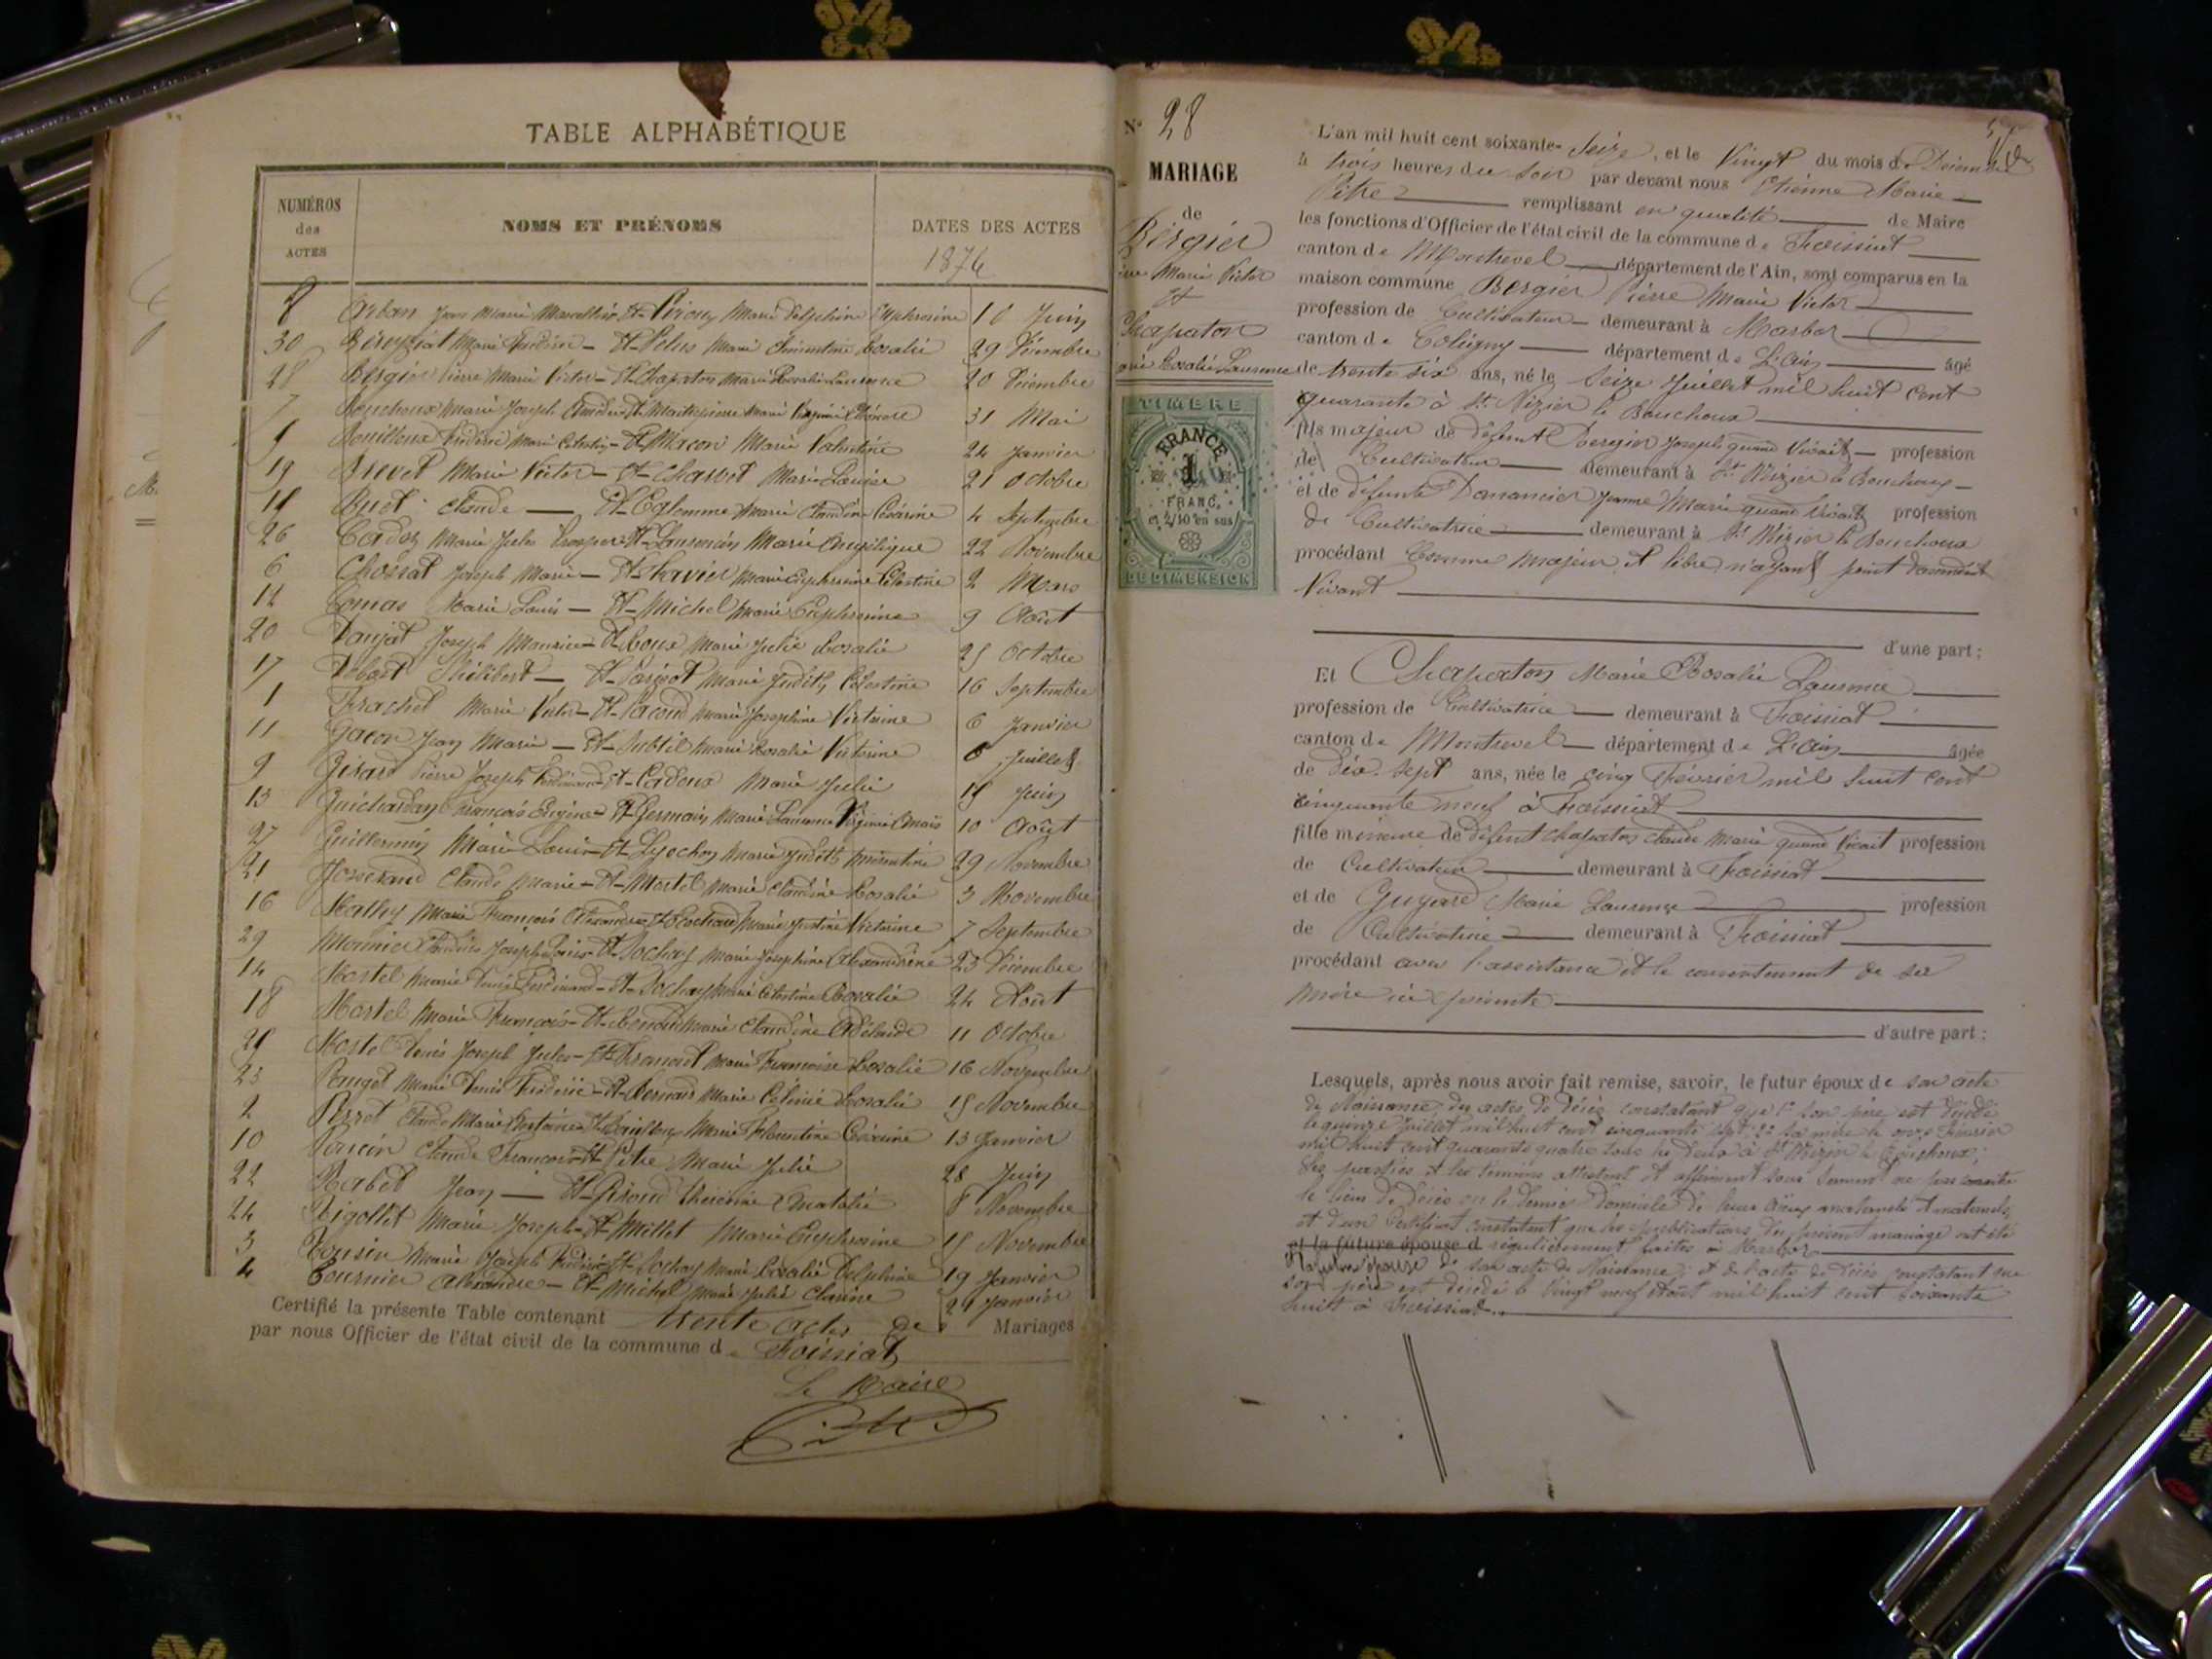 TABLE ALPHABÉTIQUE
NUMÉROS des ACTES
NOMS ET PRÉNOMS
DATES DES ACTES
1876
8 Orban Jean Marie Marcellin Et Piroux Marie Delphine Euphrosine 10 Juin
30 Béreyziat Marie Frédéric - Et Pelus Marie Clémentine Rosalie 29 Décembre
28 Bergier Pierre Marie Victor - Et Chapaton Marie Rosalie Laurence 20 Décembre
7 Bouchoux Marie Joseph Marie 31 Mai
Bouilloux Frédéric Marie Célestin - Et Marie Valentine 24 Janvier
19 Brevet Marie Victor - Et Charvet Marie Louise 21 Octobre
Buet Claude - Et Marie Claudine Césarine 4 Septembre
26 Cadoz Marie Jules Prosper Et Laurencin Marie Angélique 22 Novembre
6 Chossat Joseph Marie - Et Marie Euphrosine Célestine 2 Mars
12 Comas Marie Louis - Et Michel Marie Euphrosine 9 Août
20 Danjat Joseph Maurice - Et Roux Marie Julie Rosalie 25 Octobre
17 Philibert - Et Marie Judith Célestine 16 Septembre
1 Frachet Marie Victor - Et Pacoud Marie Joséphine Victorine 6 Janvier
11 Gacon Jean Marie - Et Subtil Marie Rosalie Victorine 6 Juillet
9 Girard Pierre Joseph Ferdinand - Et Cadoux Marie Julie 15 Juin
13 Guichardan François Eugène - Et Germain Marie Laurence Virginie 10 Août
27 Guillermin Marie Louis - Et Marie Judith 29 Novembre
21 Josserand Claude Marie - Et Martel Marie Claudine Rosalie 3 Novembre
16 Mathy Marie François Alexandre Et Marie Justine Victorine 7 Septembre
29 Monnier Joseph Louis - Et Sochay Marie Joséphine Alexandrine 23 Décembre
14 Martel Marie Denis Ferdinand - Et Sochay Marie Célestine Rosalie 24 Août
18 Martel Marie François - Et Marie Claudine Adélaïde 11 Octobre
Martel Denis Joseph Jules - Et Marie Françoise Rosalie 16 Novembre
23 Ponget Marie Denis Frédéric - Et Marie Rosalie 15 Novembre
2 Perret Claude Marie Et Marie Florentine Césarine 13 Janvier
10 Poncin Claude François - Et Pitre Marie Julie 28 Juin
22 Rabet Jean - Et Natalie 8 Novembre
24 Rigollet Marie Joseph - Et Millet Marie Euphrosine 15 Novembre
3 Marie Joseph Frédéric Et Sochay Marie Rosalie Delphine 19 Janvier
4 Tournier Alexandre - Et Michel Marie Julie Clarine 24 Janvier
Certifié la présente Table contenant trente actes de Mariages
par nous Officier de l'état civil de la commune de Foissiat
Le Maire
Pitre
N° 28
MARIAGE
de
Bergier
Marie Victor
Et
Chapaton
Rosalie Laurence
TIMBRE
FRANCE
1
FRANC.
et 2/10 en sus
DE DIMENSION
L'an mil huit cent soixante-seize, et le vingt du mois de Décembre
à trois heures du soir par devant nous Etienne Marie
Pitre remplissant en qualité de Maire
les fonctions d'Officier de l'état civil de la commune de Foissiat
canton de Montrevel département de l'Ain, sont comparus en la
maison commune Bergier Pierre Marie Victor
profession de Cultivateur demeurant à Marboz
canton de Coligny département de L'Ain âgé
de trente six ans, né le seize Juillet mil huit cent
quarante à St Nizier le Bouchoux
fils majeur de défunt Bergier Joseph quand vivait profession
de Cultivateur demeurant à St Nizier le Bouchoux
et de défunte Danancier Jeanne Marie quand vivait profession
de Cultivatrice demeurant à St Nizier le Bouchoux
procédant Comme majeur et libre n'ayant point d'ascendant
vivant
d'une part ;
Et Chapaton Marie Rosalie Laurence
profession de Cultivatrice demeurant à Foissiat
canton de Montrevel département de L'Ain âgée
de dix-sept ans, née le cinq Février mil huit cent
cinquante neuf à Foissiat
fille mineure de défunt Chapaton Claude Marie quand vivait profession
de Cultivateur demeurant à Foissiat
et de Guyard Marie Laurence profession
de Cultivatrice demeurant à Foissiat
procédant avec l'assistance et le consentement de sa
mère ici présente
d'autre part ;
Lesquels, après nous avoir fait remise, savoir, le futur époux de son acte
de Naissance, des actes de décès constatant que 1° son père est décédé
le quinze Juillet mil huit cent cinquante sept 2° sa mère le onze Février
mil huit cent quarante quatre tous les deux à St Nizier le Bouchoux;
les parties et les témoins attestent et affirment sous serment ne pas connaître
le lieu de décès ni le dernier domicile de leurs aïeux paternels et maternels,
et d'un certificat constatant que les publications du présent mariage ont été
et la future épouse d régulièrement faites à Marboz
Et la future épouse de son acte de Naissance; et de l'acte de décès constatant que
son père est décédé le vingt neuf Août mil huit cent soixante
huit à Foissiat